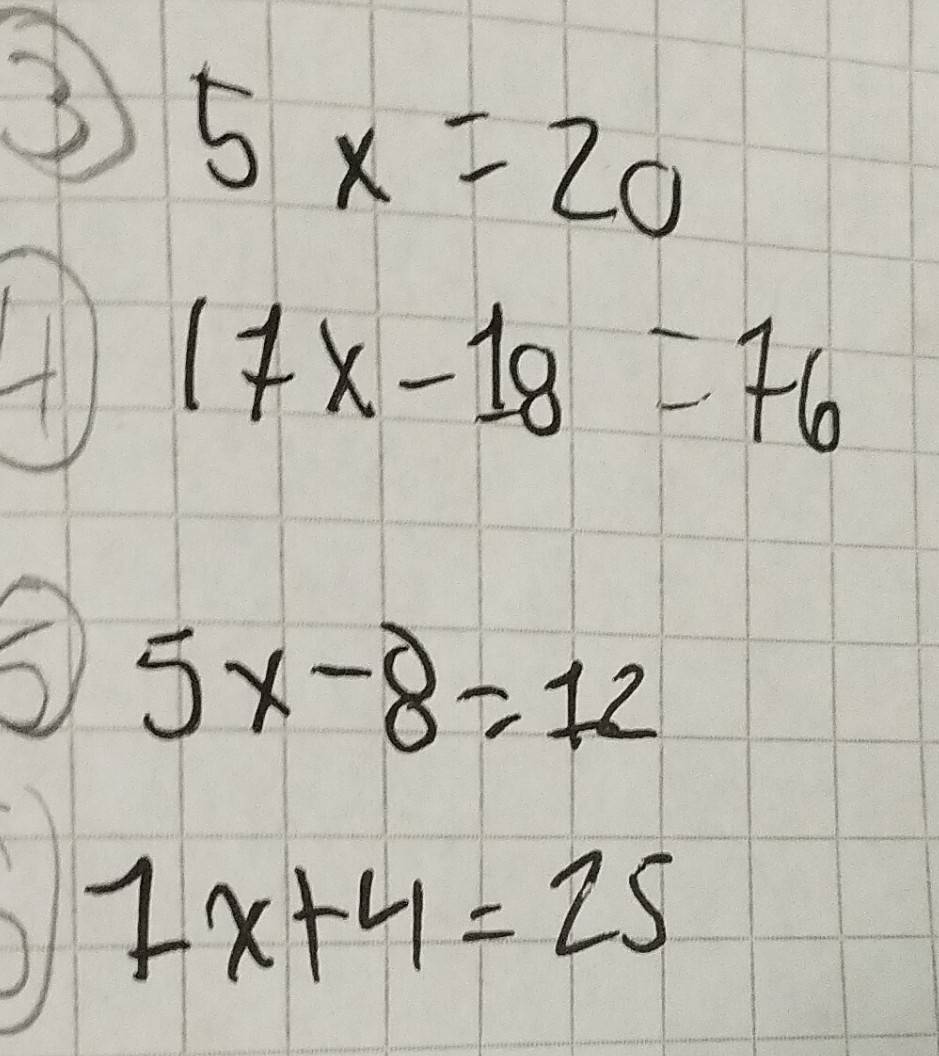 ③ 5x = 20
④ 17x - 18 = 76
⑤ 5x - 8 = 12
1x + 4 = 25